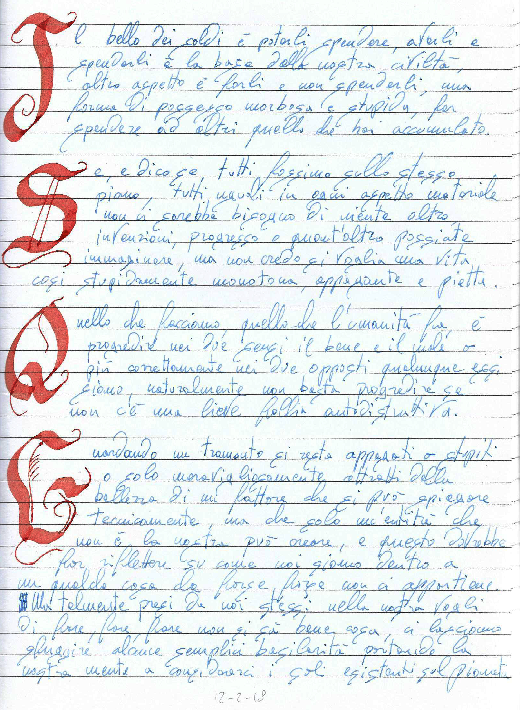 Il bello dei soldi è poterli spendere, averli e
spenderli è la base della nostra civiltà,
altro aspetto è farli e non spenderli, una
forma di possesso morbosa e stupida, far
spendere ad altri quello che hai accumulato.
Se, e dico se, tutti fossimo sullo stesso
piano, tutti uguali in ogni aspetto materiale
non ci sarebbe bisogno di niente altro,
invenzioni, progresso e quant'altro possiate
immaginare, ma non credo si voglia una vita
così stupidamente monotona, appagante e piatta.
Quello che facciamo, quello che l'umanità fa, è
progredire nei due sensi il bene e il male o
più correttamente nei due opposti qualunque essi
siano, naturalmente non basta progredire se
non c'è una lieve follia autodistruttiva.
Guardando un tramonto si resta appagati o stupiti
o solo meravigliosamente attratti dalla
bellezza di un fattore che si può spiegare
tecnicamente, ma che solo un'entità che
non è la nostra può creare, e questo dovrebbe
far riflettere su come noi siamo dentro a
un qualche cosa che forse non ci appartiene.
Ma talmente presi da noi stessi nella nostra voglia
di fare, fare, fare non si sà bene cosa, ci lasciamo
sfuggire alcune semplici basilarità portando la
nostra mente a considerarci i soli esistenti sul pianeta
2-2-18